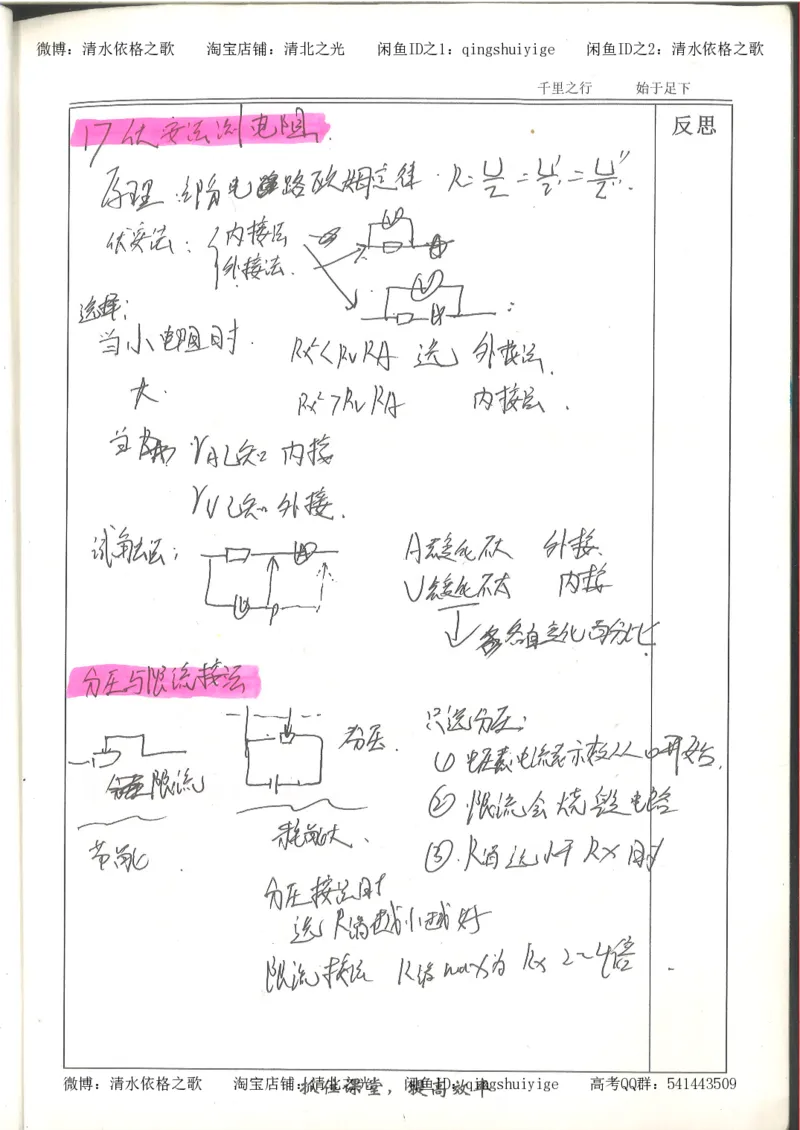 微博：清水依格之歌 淘宝店铺：清北之光 闲鱼ID之1：qingshuiyige 闲鱼ID之2：清水依格之歌
千里之行 始于足下
反思
17 伏安法测电阻.
原理：部分电路欧姆定律. R=U/I=U'/I'=U''/I''.
伏安法：内接法
外接法.
选择：
当小电阻时. Rx²<RVRA 选 外接法.
大. Rx²>RVRA 内接法.
当 rA已知 内接
rV已知 外接.
试触法：
A变化不大 外接.
V变化不大 内接
各自变化百分比
分压与限流接法
分压.
限流
节能.
耗能大.
只选分压：
① 电压表电流表示数从0开始.
② 限流会烧毁电路
③. R滑远小于Rx时
分压接法时
选R滑越小越好
限流接法 R滑max为Rx 2~4倍.
抓住课堂，提高效率
微博：清水依格之歌 淘宝店铺：清北之光 闲鱼ID：qingshuiyige 高考QQ群：541443509